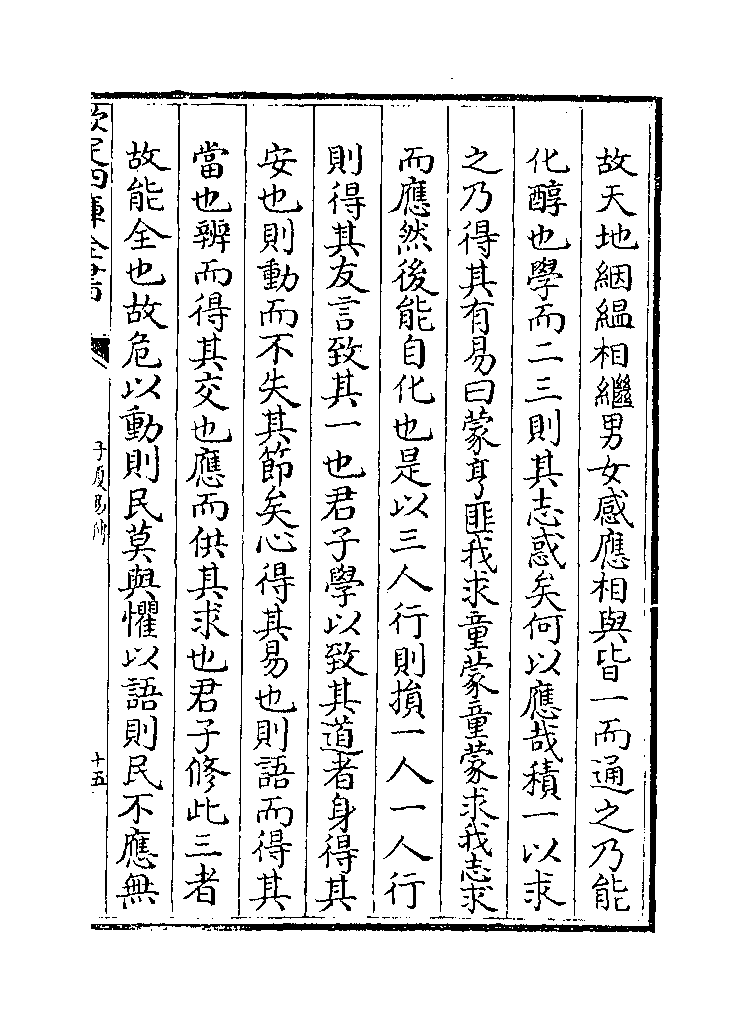 故天地絪縕相繼男女感應相與皆一而通之乃能
化醇也學而二三則其志惑矣何以應哉積一以求
之乃得其有易曰蒙亨匪我求童蒙童蒙求我志求
而應然後能自化也是以三人行則損一人一人行
則得其友言致其一也君子學以致其道者身得其
安也則動而不失其節矣心得其易也則語而得其
當也辨而得其交也應而供其求也君子修此三者
故能全也故危以動則民莫與懼以語則民不應無
欽定四庫全書
子夏易傳
十五